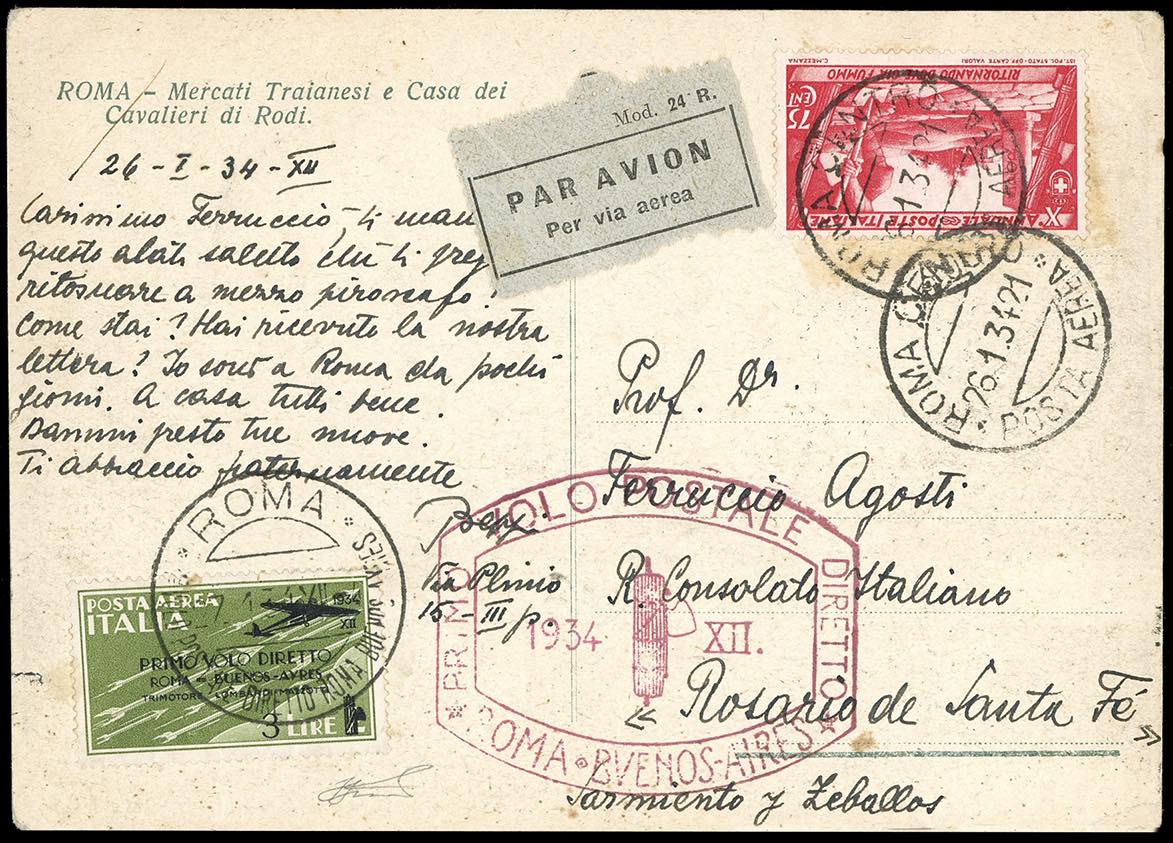 ROMA - Mercati Traianesi e Casa dei
Cavalieri di Rodi.
26-I-34-XII
Carissimo Ferruccio, ti man
questo alato saluto che ti preg
ritornare a mezzo piroscafo!
Come stai? Hai ricevuto la nostra
lettera? Io sono a Roma da pochi
giorni. A casa tutti bene.
Dammi presto tue nuove.
Ti abbraccio fraternamente
Via Plinio
15-III p.
Mod. 24 R.
PAR AVION
Per via aerea
IST. POL. STATO-OFF. CARTE VALORI
C. MEZZANA
RITORNANDO DOVE GIA FUMMO
75
CENT
Xº ANNUALE POSTE ITALIANE
ROMA CENTRO POSTA AEREA
26.1.34 21
ROMA CENTRO
26.1.34 21
POSTA AEREA
Prof. Dr.
Ferruccio Agosti
R. Consolato Italiano
Rosario de Santa Fé
Sarmiento y Zeballos
PRIMO VOLO POSTALE DIRETTO
1934 XII.
ROMA BVENOS-AIRES
ROMA
DIRETTO ROMA BUENOS AYRES
POSTA AEREA
ITALIA
1934
XII
PRIMO VOLO DIRETTO
ROMA = BUENOS-AYRES
TRIMOTORE "LOMBARDI MAZZOTTI"
3 LIRE